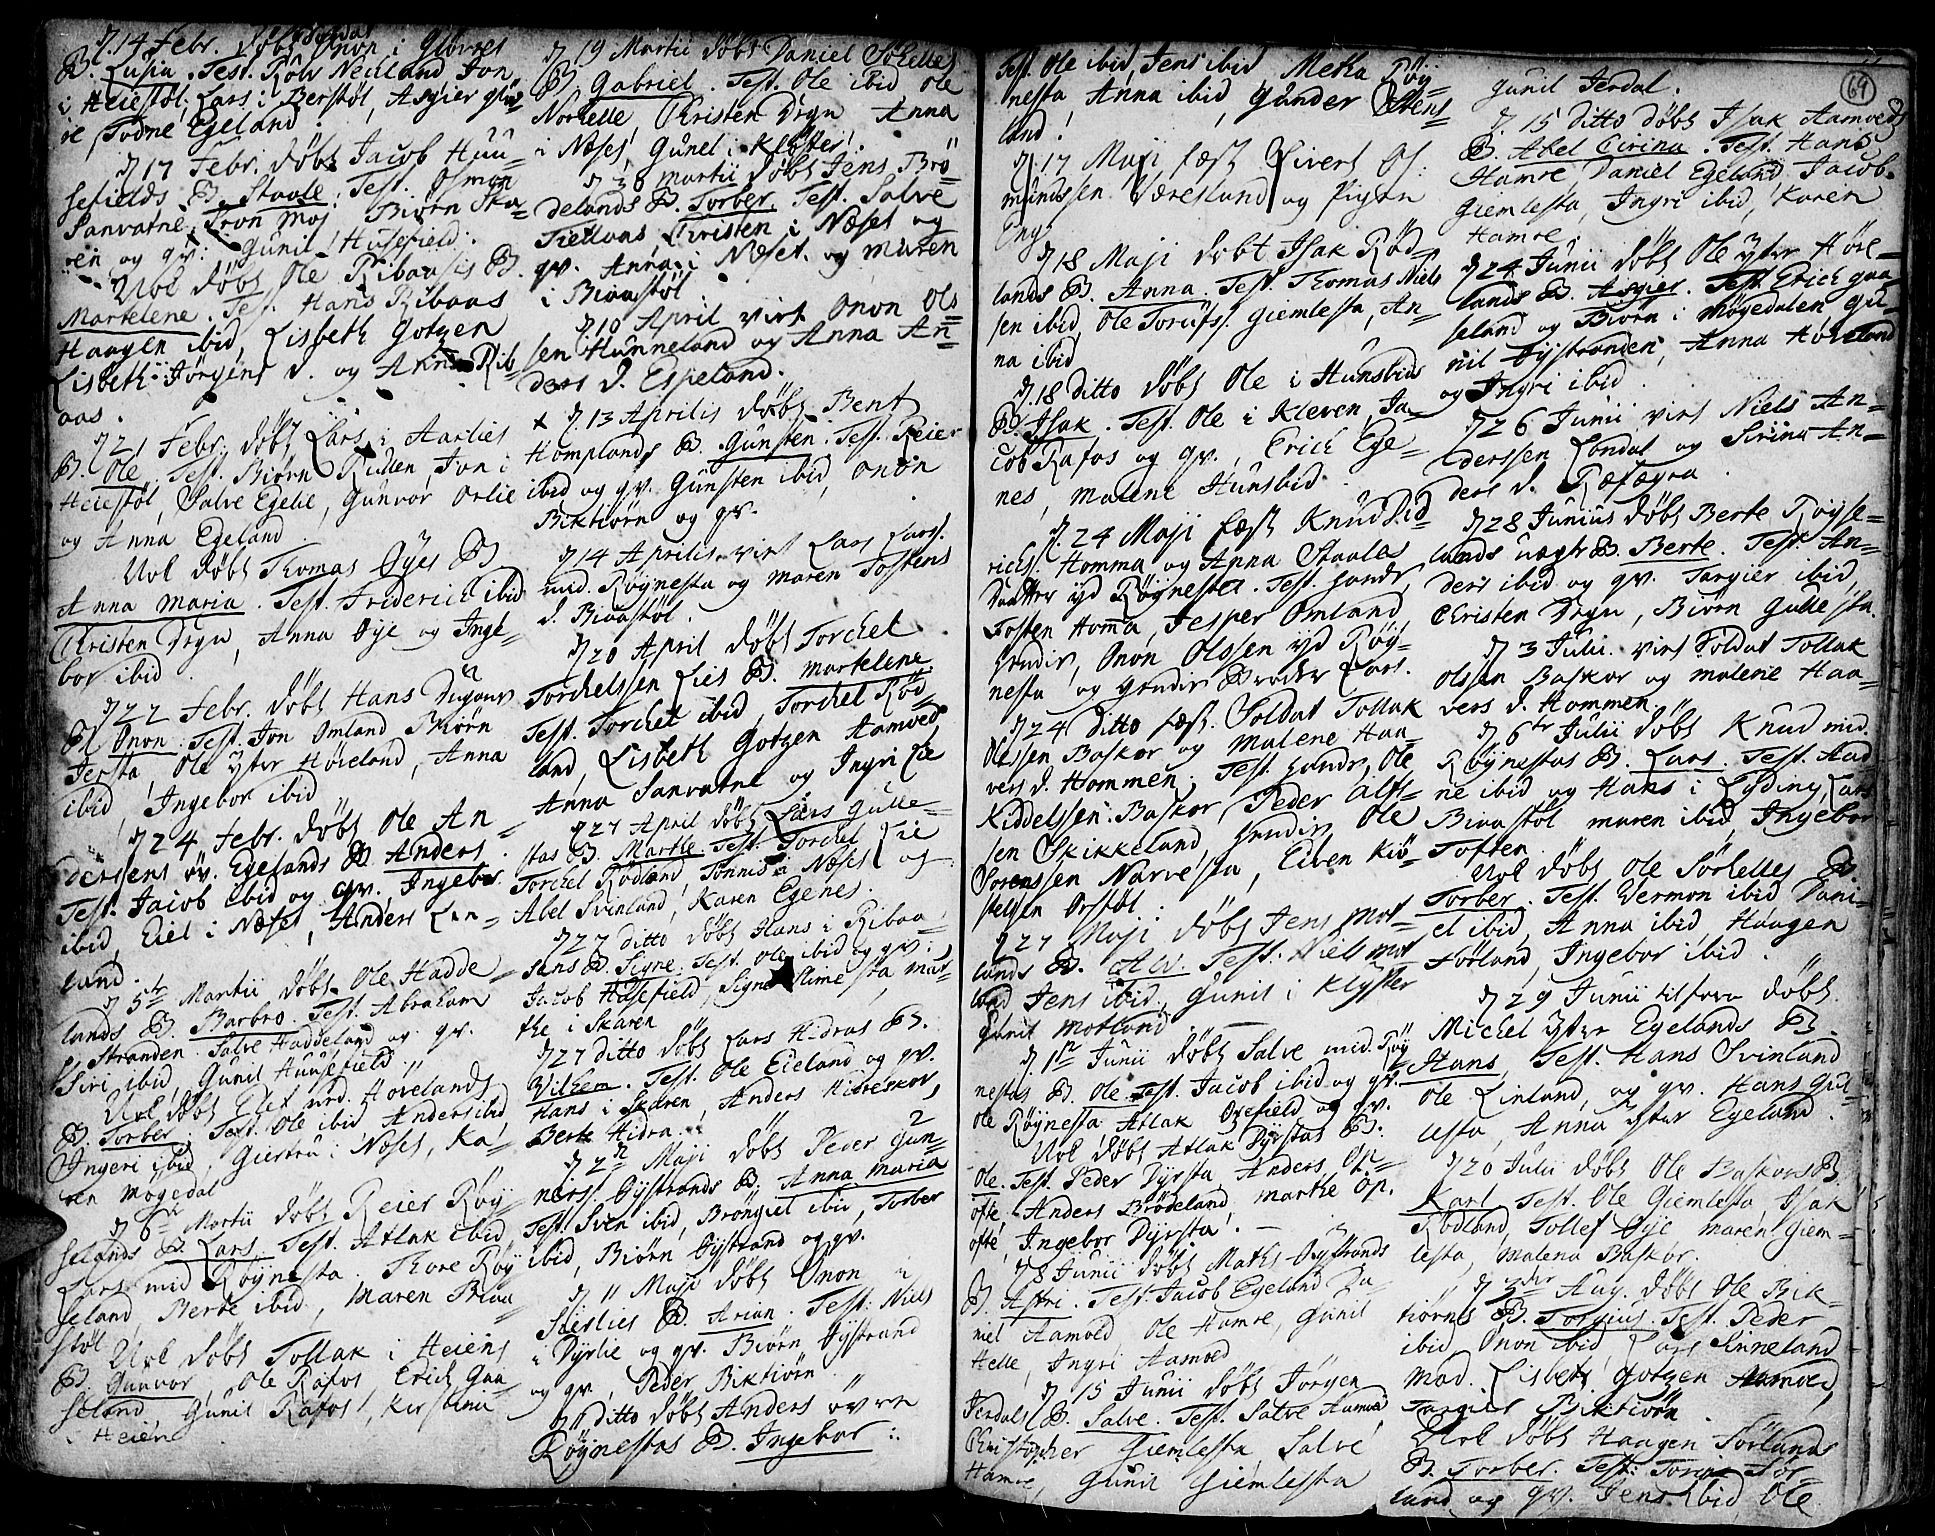 D. 14 Febr. døbt Onon i Glovres
B. Lusia. Test. Rolv Neuland Jon
i Heiestøl, Lars i Berstøl, Asgier
Todne Egeland.
D. 17 Febr. døbt Jacob Huu-
sefields B. Staale. Test. Osmon
Sanvatne, Tron Moj Biørn Ska-
ren og qv: Gunil Husefield.
Ux døbt Ole Ribaasis B.
Martelene. Test. Hans Ribaas
Haagen ibid, Lisbeth Gotzen
Lisbeth Jørgens d. og Anna Rib-
aas.
D 21 Febr. døbt Lars i Aarlies
B. Ole. Test. Biørn Jon i
Heiestøl, Salve Egelie, Gunvor Orlie
og Anna Egeland.
døbt Thomas Øyes B
Anna Maria. Test. Friderich ibid
Christen Dryn, Anna Øye og Inge-
bor ibid.
D 22 Febr. døbt Hans
B Onon. Test. Jon Omland Biørn
Jersta, Ole Yster Høieland, Anna
ibid, Ingebor ibid
D 24 Febr. døbt Ole An-
derssens øv. Egelands B Anders.
Test. Jacob ibid og qv. Ingebor
ibid, Eiel i Næset, Anders Lin-
land.
D 5te Martii døbt Ole Hadde
lands B. Barbro. Test. Abraham
p. Stranden. Salve Haddeland og qv.
Siri ibid, Gunil Huusefield
døbt Elef nrd. Hövelands
B. Torber. Test. Ole ibid Anders ibid
Ingeri ibid, Giertru i Næset, Ka-
ren Mögedal
D 6te Martii døbt Reier Røy-
selands B. Lars. Test. Atlak ibid,
Lars mid Røynesta. Thore Røy
seland, Berte ibid, Maren Biaa
støl
døbt Tollak i Heiens
B Gunvor, Ole Rafos Erich Gaa
seland, Gunil Rafos, Kirstine
Heien
D 19 Martii døbt Daniel Sørhelles
B. Gabriel. Test. Ole ibid Ole
Norhelle Christen Dryn Anna
i Næset, Gunel i Klÿster.
D 30 Martii døbt Jens Brö-
delands B. Torber. Test. Salve
Fiellaas, Christen i Næset og
qv. Anna i Næset. og Maren
i Biaastøl
D 10 April virt Onon Ols
sen Hunneland og Anna An-
ders d. Espeland.
D. 13 Aprilis døbt Bent
Homplands B. Gunsten. Test. Reier
ibid og qv. Gunsten ibid, Onon
Biktiörn og qv.
D 14 Aprilis virt Lars Lars.
mid. Røynesta og Maren Tostens
d. Biaastøl.
D 20 April døbt Torchel
Torchelssen Lies B. Martelene
Test. Torchel ibid, Torchel Röd-
land, Lisbeth Gotzen Aamoed
Anna Sanvatne og Ingri Lie
D 27 April døbt Lars Gulle-
stas B. Marthe Test. Torchel Lie
Torchel Rödland, Tönnis i Næset og
Abel Svinland, Karen Egenes.
D 27 Ditto døbt Hans i Ribaa
sens B. Signe. Test. Ole ibid og qv:
Jacob Husefield, Signe Slime sta, mar-
the i Skaren
D 27 Ditto døbt Lars Hidras B.
Vilhem. Test. Ole Eieland og qv.
Hans i Skaren, Anders Hidreskor,
Berte Hidra.
D 2den Maji døbt Peder Gun-
ners. Öÿstrands B. Anna Maria
Test. Sven ibid, Bröngiel ibid, Torber
ibid, Biørn Öÿstrand og qv.
D 11 Maji døbt Onon
Stierlies B. Arian. Test. Niels
i Dyrlie og qv. Biørn Öÿstrand
og qv, Peder Biktiörn
D Ditto døbt Anders övre
Röynestas B. Ingebor :
Test. Ole ibid, Jens ibid, Metha Røÿ-
nesta Anna ibid, Gunder Stens
land!
D 17 Maji fæst Sivert Os:
mundssen Væreslund og Pigen
Eng
D 18 Maji døbt Isak Röd-
lands B. Anna. Test. Thomas Niels
sen ibid, Ole Torkils. Giemlesta, An-
na ibid
D. 18 Ditto døbt Ole i Hunsbids
B. Isak. Test. Ole i Kleven, Ja-
cob Rafos og qv., Erich Ege-
nes, Malene Hunsbid.
D. 24 Maji fæst Knud Did-
richs. Homma og Anna Staales
Daatter yd Røynesta. Test.
Tosten Homma, Jesper Omland,
Onon Olssen yd Røy-
nesta og Broder Lars.
D 24 Ditto fæst. Soldat Tollak
Olssen Baskor og Malene Haa-
vers d. Hommen, Test. Ole
Kiddelssen Baskor, Peder
sen Skikkeland, Ole
Sorenssen Narvesta, Even Kiö-
stelsen Orstøl.
D 27 Maji døbt Jens Mot-
lands B. Alv. Test. Niels Mot
land Jens ibid, Gunil i Klÿster
Gunil Motland
D 1ste Junii døbt Salve mid. Röÿ
nestas B. Ole Test. Jacob ibid og qv.
Ole Röynesta Atlak Qvefield og qv.
døbt Atlak Dÿrstas B.
Ole. Test. Peder Dyrsta, Anders Op-
ofte, Anders Brödeland, Marthe Op.
ofte, Ingebor Dyrsta.
D 8 Junii døbt Maths Öÿstrands
B. Astri. Test. Jacob Egeland Da-
niel Aamoed, Ole Hamre, Gunil
Helle, Ingri Aamoed
D 15 Junii døbt Jörgen
Jerdals B. Salve. Test. Salve Aamoed
Christopher Giemlesta Salve
Hamre, Gunil Giemlesta
Gunil Jerdal.
D. 15 Ditto døbt Isak Aamoeds
B. Abel Cirina. Test. Hans
Hamre Daniel Egeland Jacob
Giemlesta, Ingri ibid, Karen
Hamre.
D 24 Junii døbt Ole Yster Höie-
lands B. Asgier. Test. Erich Gaa
seland og Biørn i Mögedalen Gu-
nil Öÿstranden, Anna Höieland
og Ingri ibid.
D 26 Junii virt Niels An-
derssen Londal og Sirina An-
ders d. Ræfægra
D 28 Junius døbt Berte Röyse-
lands uægte B. Berte. Test. An-
ders ibid og qv. Targier ibid,
Christen Dryn, Biörn Gullesta.
D 3 Julii virt Soldat Tollak
Olssen Baskor og Malene Haa-
vers d. Hommen
D 6te Julii døbt Knud mid.
Röynestas B. Lars. Test. Aad-
ne ibid og Hans i Lÿding, Lars
Biaastøl Maren ibid, Ingebor
Toften
døbt Ole Sörhelles B.
Torber. Test. Vermon ibid Dani-
el ibid, Anna ibid, Haagen
Förland, Ingebor ibid.
D 29 Junii tilforn døbt
Michel Yster Egelands B.
Hans, Test. Hans Svinland
Ole Linland, og qv. Hans Gul-
lesta, Anna Yster Egeland.
D 20 Julii døbt Ole Baskors B.
Karl Test. Ole Giemlesta, Isak
Rödland, Tollef Öye Maren Giem-
lesta, Malena Baskor.
D 3die Aug. døbt Ole Bik-
tiörns B. Torgius. Test. Peder
ibid Onon ibid, Lars Sinneland
Mad. Lisbeth Gotzen Aamoed
Targier Biktiörn
døbt Haagen Förlands
B. Torber. Test: Tor
land og qv. Jens ibid, Ole
69